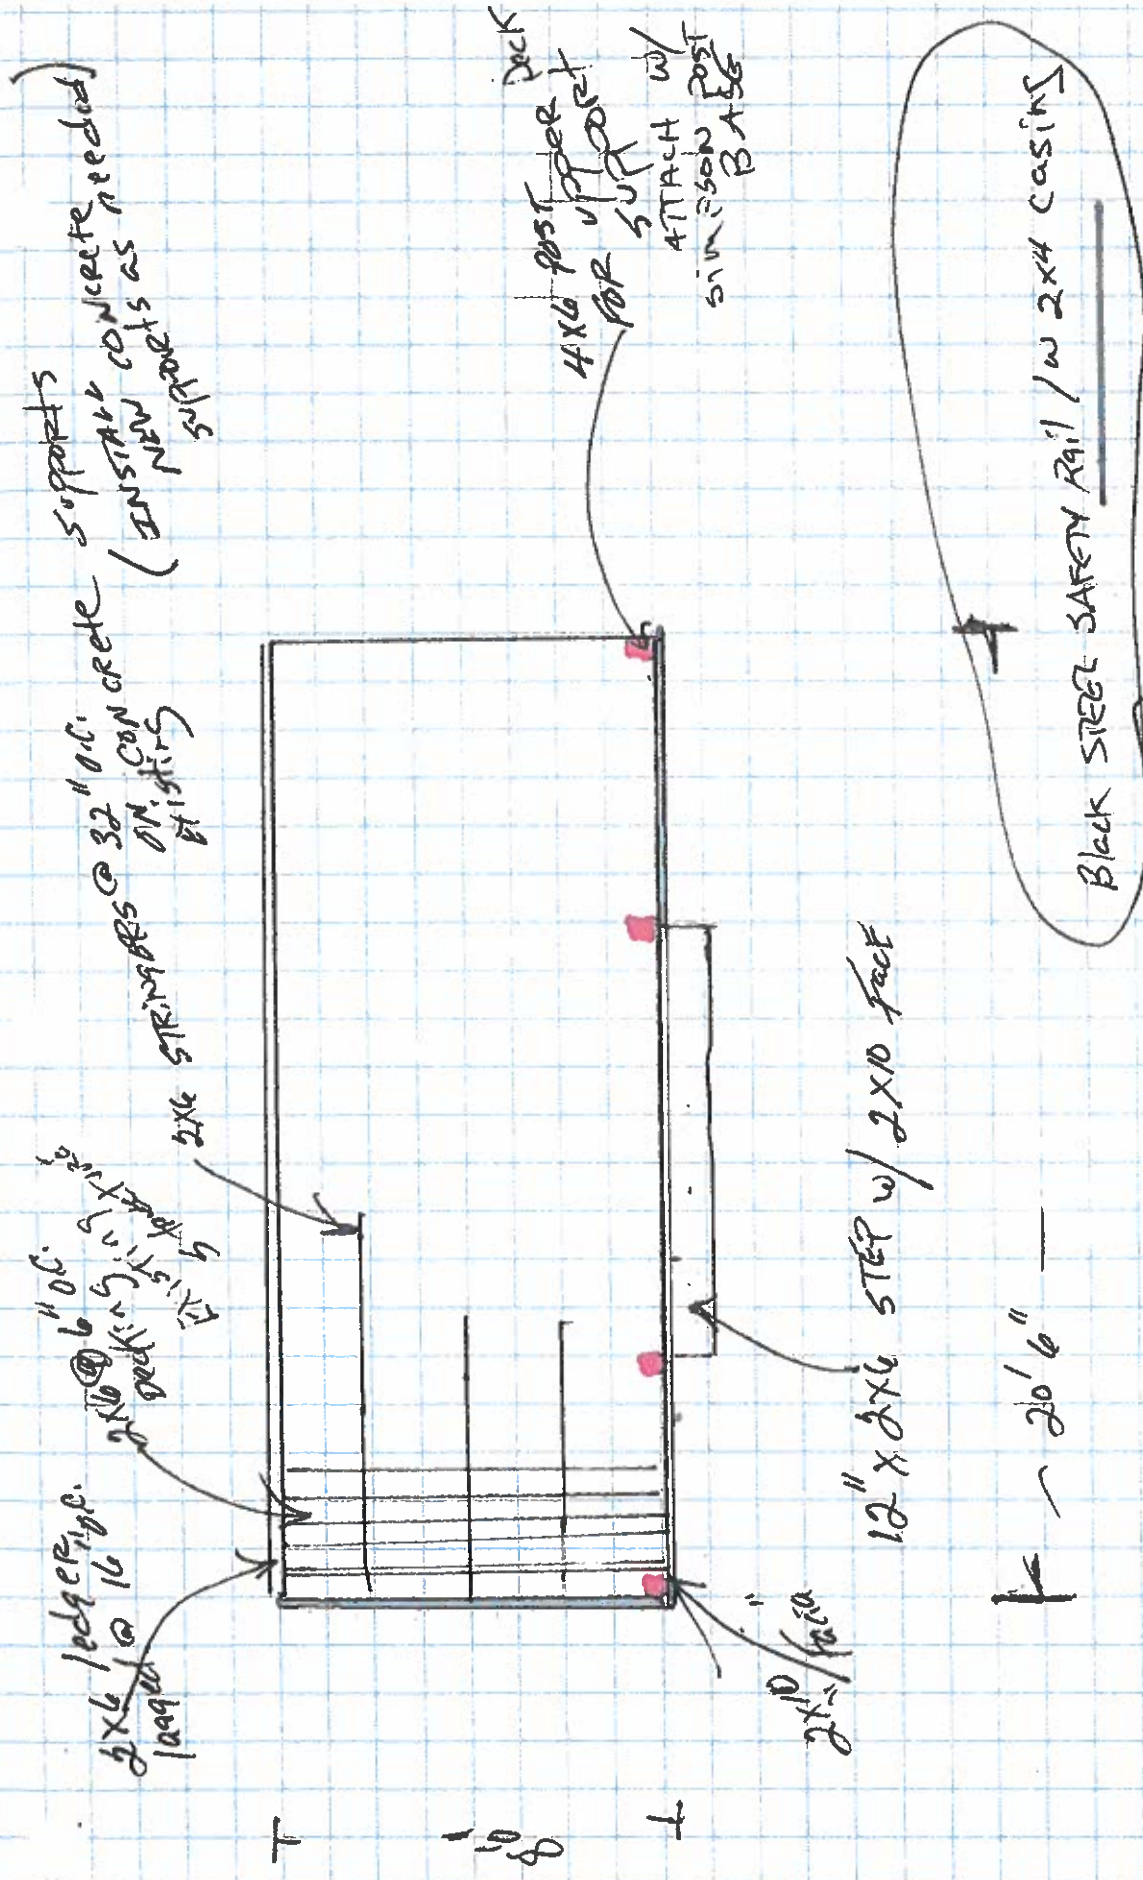 2x6 ledger
lagged @ 16" o.c.
2x6 @ 6" o.c.
Decking
2x6 STRINGERS @ 32" o.c.
ON CONCRETE Supports
Existing
(INSTALL CONCRETE
NEW supports as needed)
4x6 POST
FOR UPPER Deck
SUPPORT
ATTACH w/
simpson POST
BASE
8'0"
2x10" facia
12" x 2x6 STEP w/ 2x10 FACE
~ 20'6" —
Black STEEL SAFETY Rail /w 2x4 casing